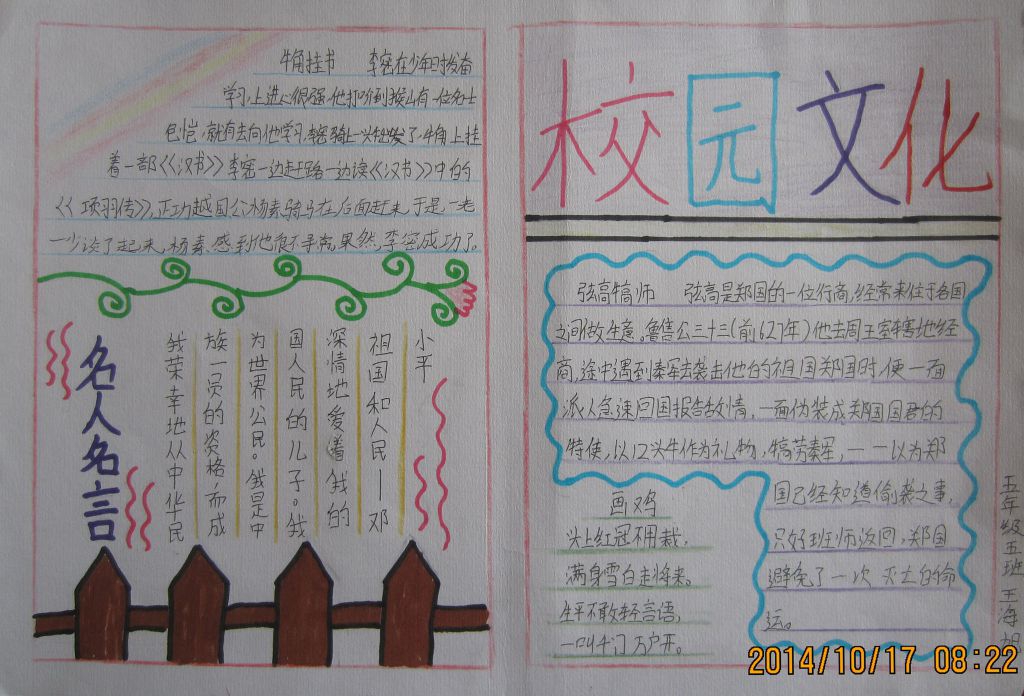 牛角挂书 李密在少年时发奋
学习,上进心很强,他打听到缑山有一位名士
包恺,就前去向他学习,李密骑上一头牛出发了,牛角上挂
着一部《《汉书》》李密一边赶路一边读《《汉书》》中的
《《项羽传》》,正巧越国公杨素骑马在后面赶来,于是,一老
一少谈了起来,杨素感到他很不寻常,果然,李密成功了。
名人名言
我荣幸地从中华民
族一员的资格,而成
为世界公民。我是中
国人民的儿子。我
深情地爱着我的
祖国和人民——邓
小平
校园文化
弦高犒师 弦高是郑国的一位行商,经常来往于各国
之间做生意。鲁僖公三十三(前627年)他去周王室辖地经
商,途中遇到秦军去袭击他的祖国郑国时,便一面
派人急速回国报告敌情,一面伪装成郑国国君的
特使,以12头牛作为礼物,犒劳秦军,——以为郑
国已经知道偷袭之事,
只好班师返回,郑国
避免了一次 灭亡的命
运。
画鸡
头上红冠不用裁,
满身雪白走将来。
生平不敢轻言语,
一叫千门万户开。
五年级五班 王海旭
2014/10/17 08:22